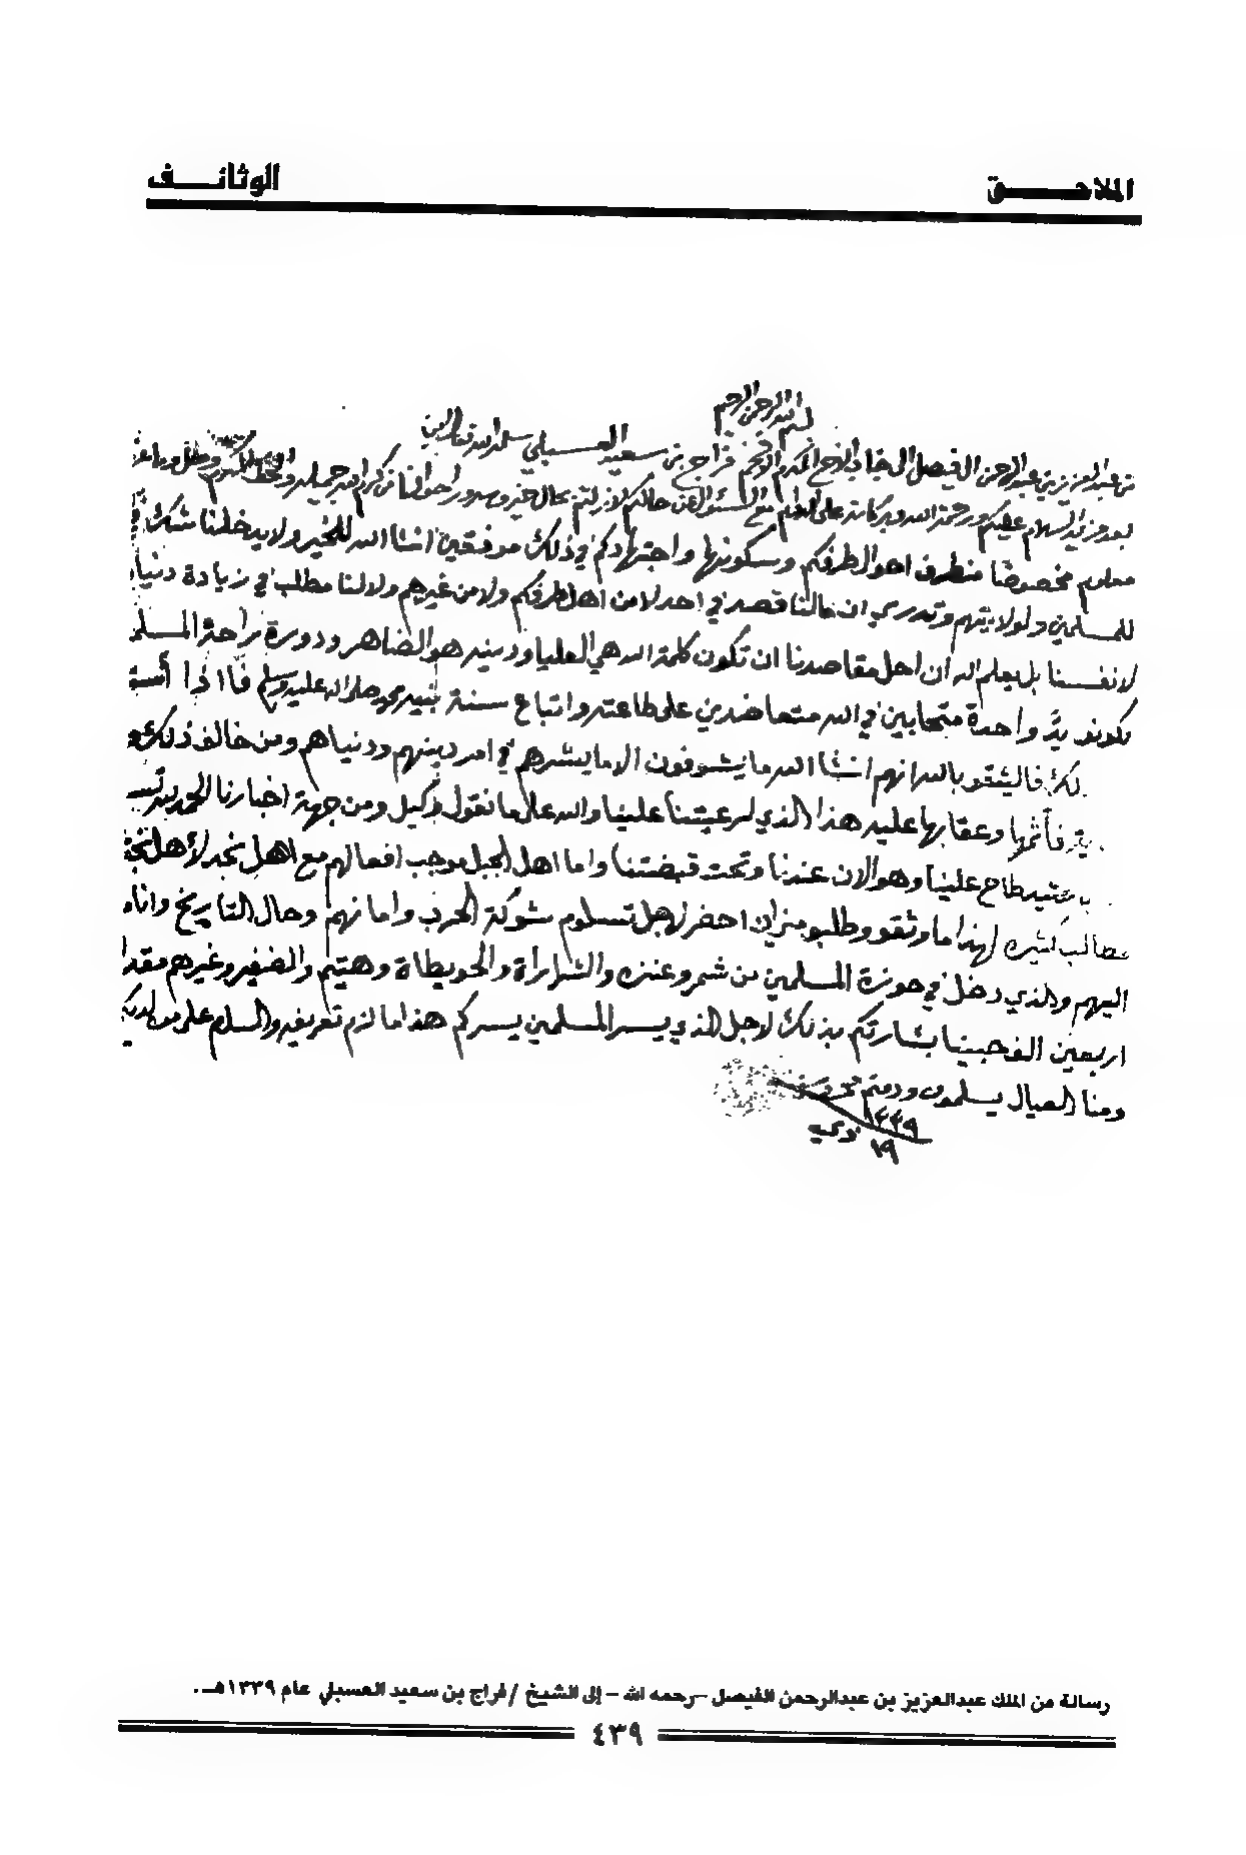 الملاحق
الوثائف
بسم الله الرحمن الرحيم
من عبد العزيز بن عبد الرحمن الفيصل الى جناب الاخ المكرم الافخم فراج بن سعيد العسبلي سلمه الله تعالى امين
بعد مزيد السلام عليكم ورحمة الله وبركاته على الدوام مع السئوال عن حالكم لازلتم بحال خير وسرور احوالنا من كرم الله جميله وخطكم المكرم وصل
معلوم مخصوصًا من طرف احوال طرفكم وسكونها واجتهادكم في ذلك موفقين انشا الله للخير ولا يدخلنا شك
للمسلمين ولولايتهم وتدري ان مالنا قصد في احد لا من اهل طرفكم ولا من غيرهم ولا لنا مطلب في زيادة دنيا
لانفسنا بل يعلم الله أن اصل مقاصدنا ان تكون كلمة الله هي العليا ودينه هو الضاهر ودورة راحة
يكونو يدًا واحدة متحابين في الله متعاضدين على طاعته واتباع سنة نبيه محمد صلى الله عليه وسلم فااذا
لك فاليثقو بالله انهم انشا الله ما يشوفون الا ما يسرهم في امر دينهم ودنياهم ومن خالف ذلك
فأثمها وعقابها عليه هذا الذي لرعيتنا علينا والله على ما نقول وكيل ومن جهة اخبارنا الحمد لله
طاح علينا وهو الان عندنا وتحت قبضتنا واما اهل الجبل موجب افعالهم مع اهل نجد لأهل
مطالب كثيره لهذا ما وثقو وطلبو منزان احضر لاجل تسلوم شوكة الحرب وامانهم وحال التاريخ وانا
اليهم والذي دخل في حوزة المسلمين من شمر وعنزه والشرارات والحويطاة وهتيم والضفير وغيرهم مقدار
اربعين الف حبينا بشارتكم بذلك لاجل الذي يسر المسلمين يسركم هذا ما لزم تعريفه والسلام على من لديكم
ومنا العيال يسلمون ودمتم
١٣٣٩
١٩
رسالة من الملك عبدالعزيز بن عبدالرحمن الفيصل -رحمه الله - إلى الشيخ / فراج بن سعيد العسبلي عام ١٣٣٩هـ .
٤٣٩